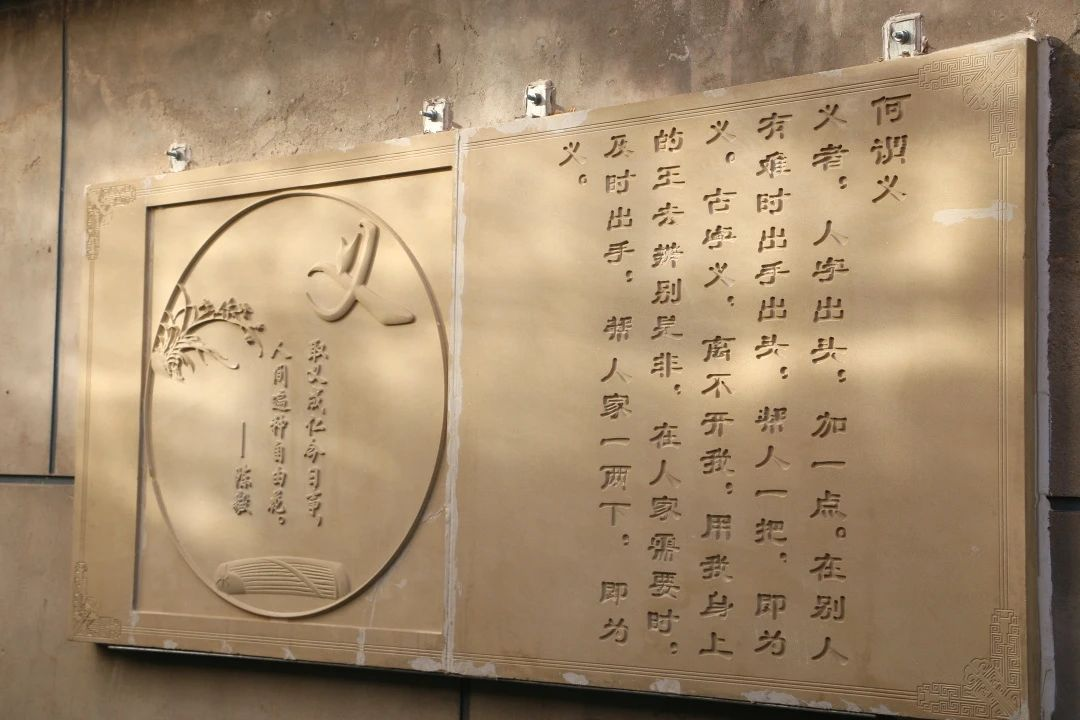 何谓义
义者，人字出头，加一点。在别人
有难时出手出头，帮人一把，即为
义。古字义，离不开我，用我身上
的王去辨别是非，在人家需要时，
及时出手，帮人家一两下，即为
义。
义
取义成仁今日事，
人间遍种自由花。
——陈毅